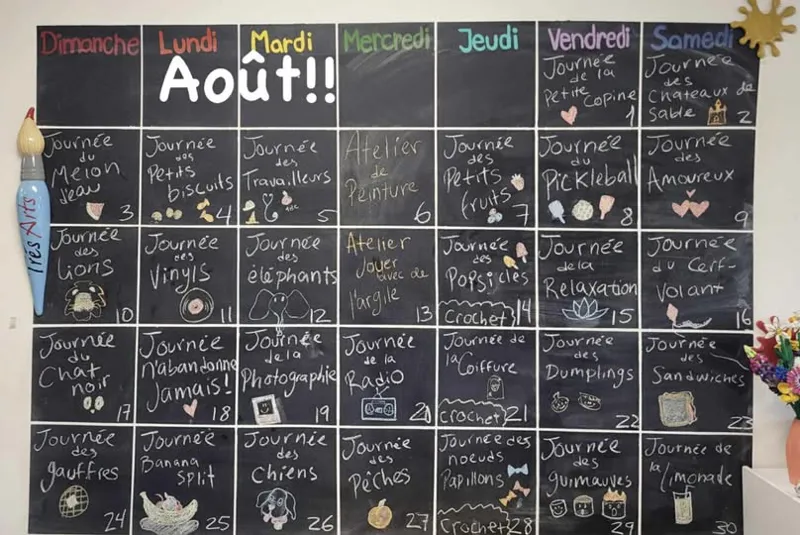 Dimanche Lundi Mardi Mercredi Jeudi Vendredi Samedi
Août!!
Journée
de la
Petite
Copine
1
Journée
des
Chateaux de
Sable
2
Journée
du
Melon
d'eau
3
Journée
des
Petits
biscuits
4
Journée
des
Travailleurs
5
Atelier
de
Peinture
6
Journée
des
Petits
fruits
7
Journée
du
Pickleball
8
Journée
des
Amoureux
9
Journée
des
Lions
10
Journée
des
Vinyls
11
Journée
des
éléphants
12
Atelier
Joyer
avec de
l'argile
13
Journée
des
Popsicles
Crochet
14
Journée
de la
Relaxation
15
Journée
du Cerf-
Volant
16
Journée
du
Chat
noir
17
Journée
n'abandonne
Jamais!
18
Journée
de la
Photographie
19
Journée
de la
Radio
20
Journée de
la
Coiffure
Crochet
21
Journée
des
Dumplings
22
Journée
des
Sandwiches
23
Journée
des
gauffres
24
Journée
Banana
split
25
Journée
des
Chiens
26
Journée
des
Pêches
27
Journée des
noeuds
Papillons
Crochet
28
Journée
des
guimauves
29
Journée de
la
limonade
30
Très Arts